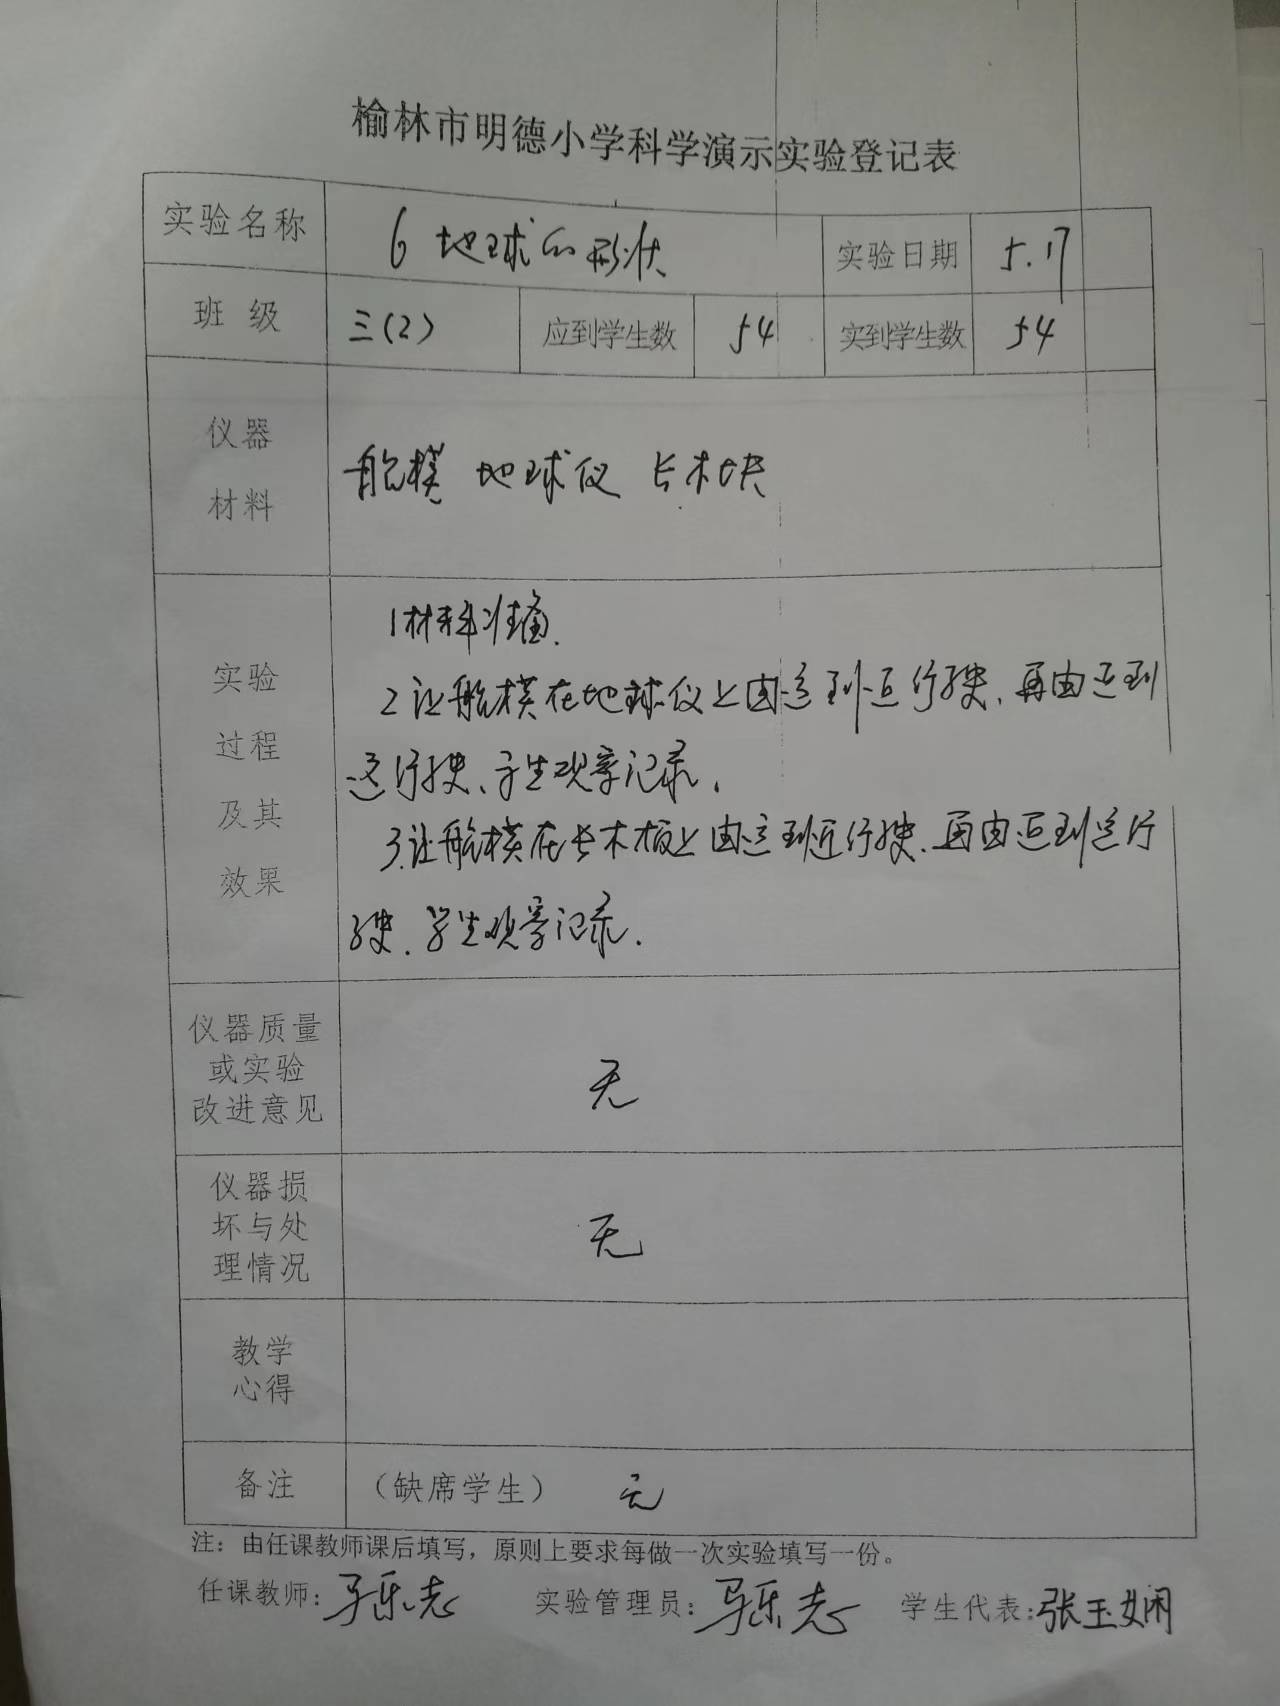 榆林市明德小学科学演示实验登记表
实验名称 6 地球的形状 实验日期 5.17
班 级 三(2) 应到学生数 54 实到学生数 54
仪器
材料
船模 地球仪 长木块
实验
过程
及其
效果
1材料准备.
2让船模在地球仪上由远到近行驶、再由近到
远行驶、学生观察记录.
3.让船模在长木板上由远到近行驶、再由近到远行
驶.学生观察记录.
仪器质量
或实验
改进意见
无
仪器损
坏与处
理情况
无
教学
心得
备注 （缺席学生） 无
注：由任课教师课后填写，原则上要求每做一次实验填写一份。
任课教师:马乐志 实验管理员:马乐志 学生代表:张玉娴